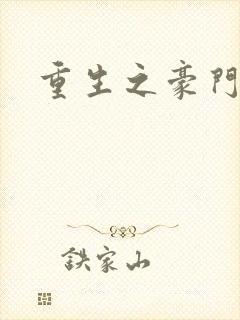 重生之豪門
鉄家山